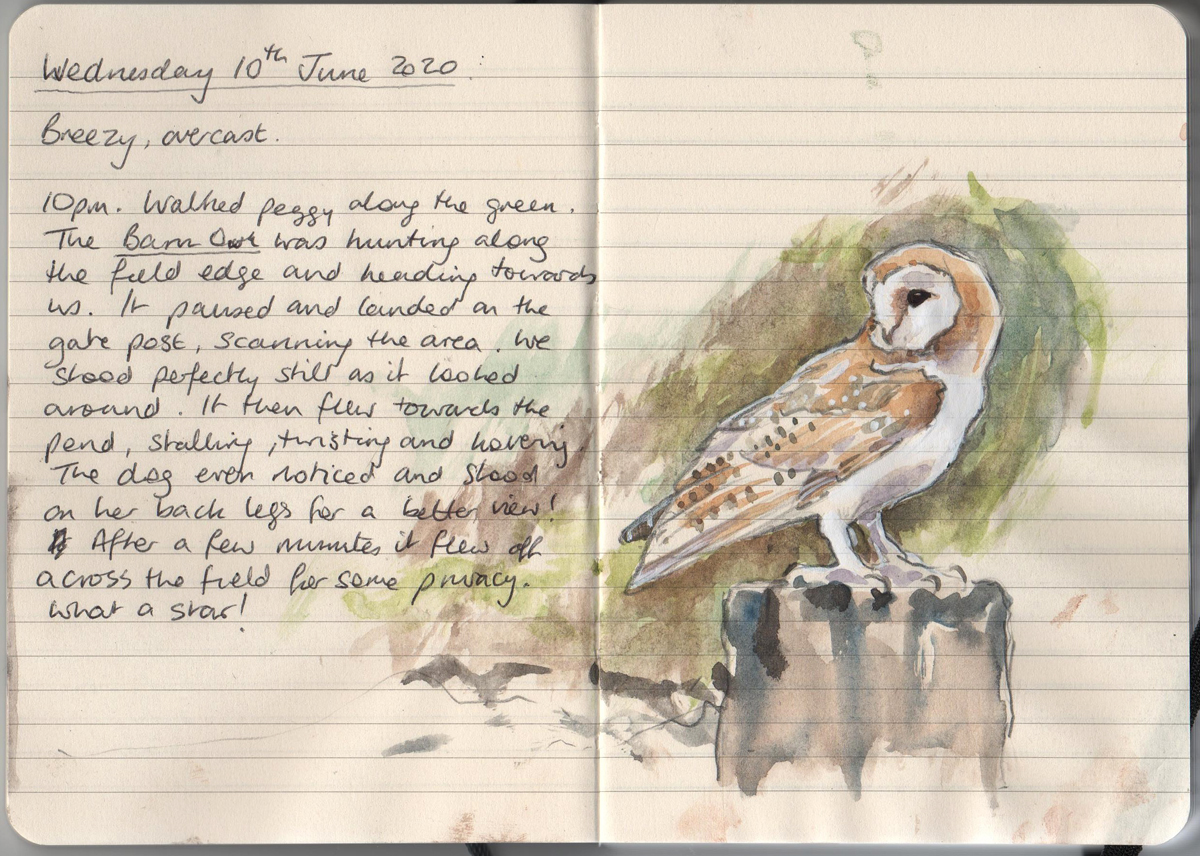 Wednesday 10th June 2020.
Breezy, overcast.
10pm. Walked peggy along the green.
The Barn Owl was hunting along
the field edge and heading towards
us. It paused and landed on the
gate post, scanning the area. We
stood perfectly still as it looked
around. It then flew towards the
pond, stalling, twisting and hovering.
The dog even noticed and stood
on her back legs for a better view!
After a few minutes it flew off
across the field for some privacy.
What a star!